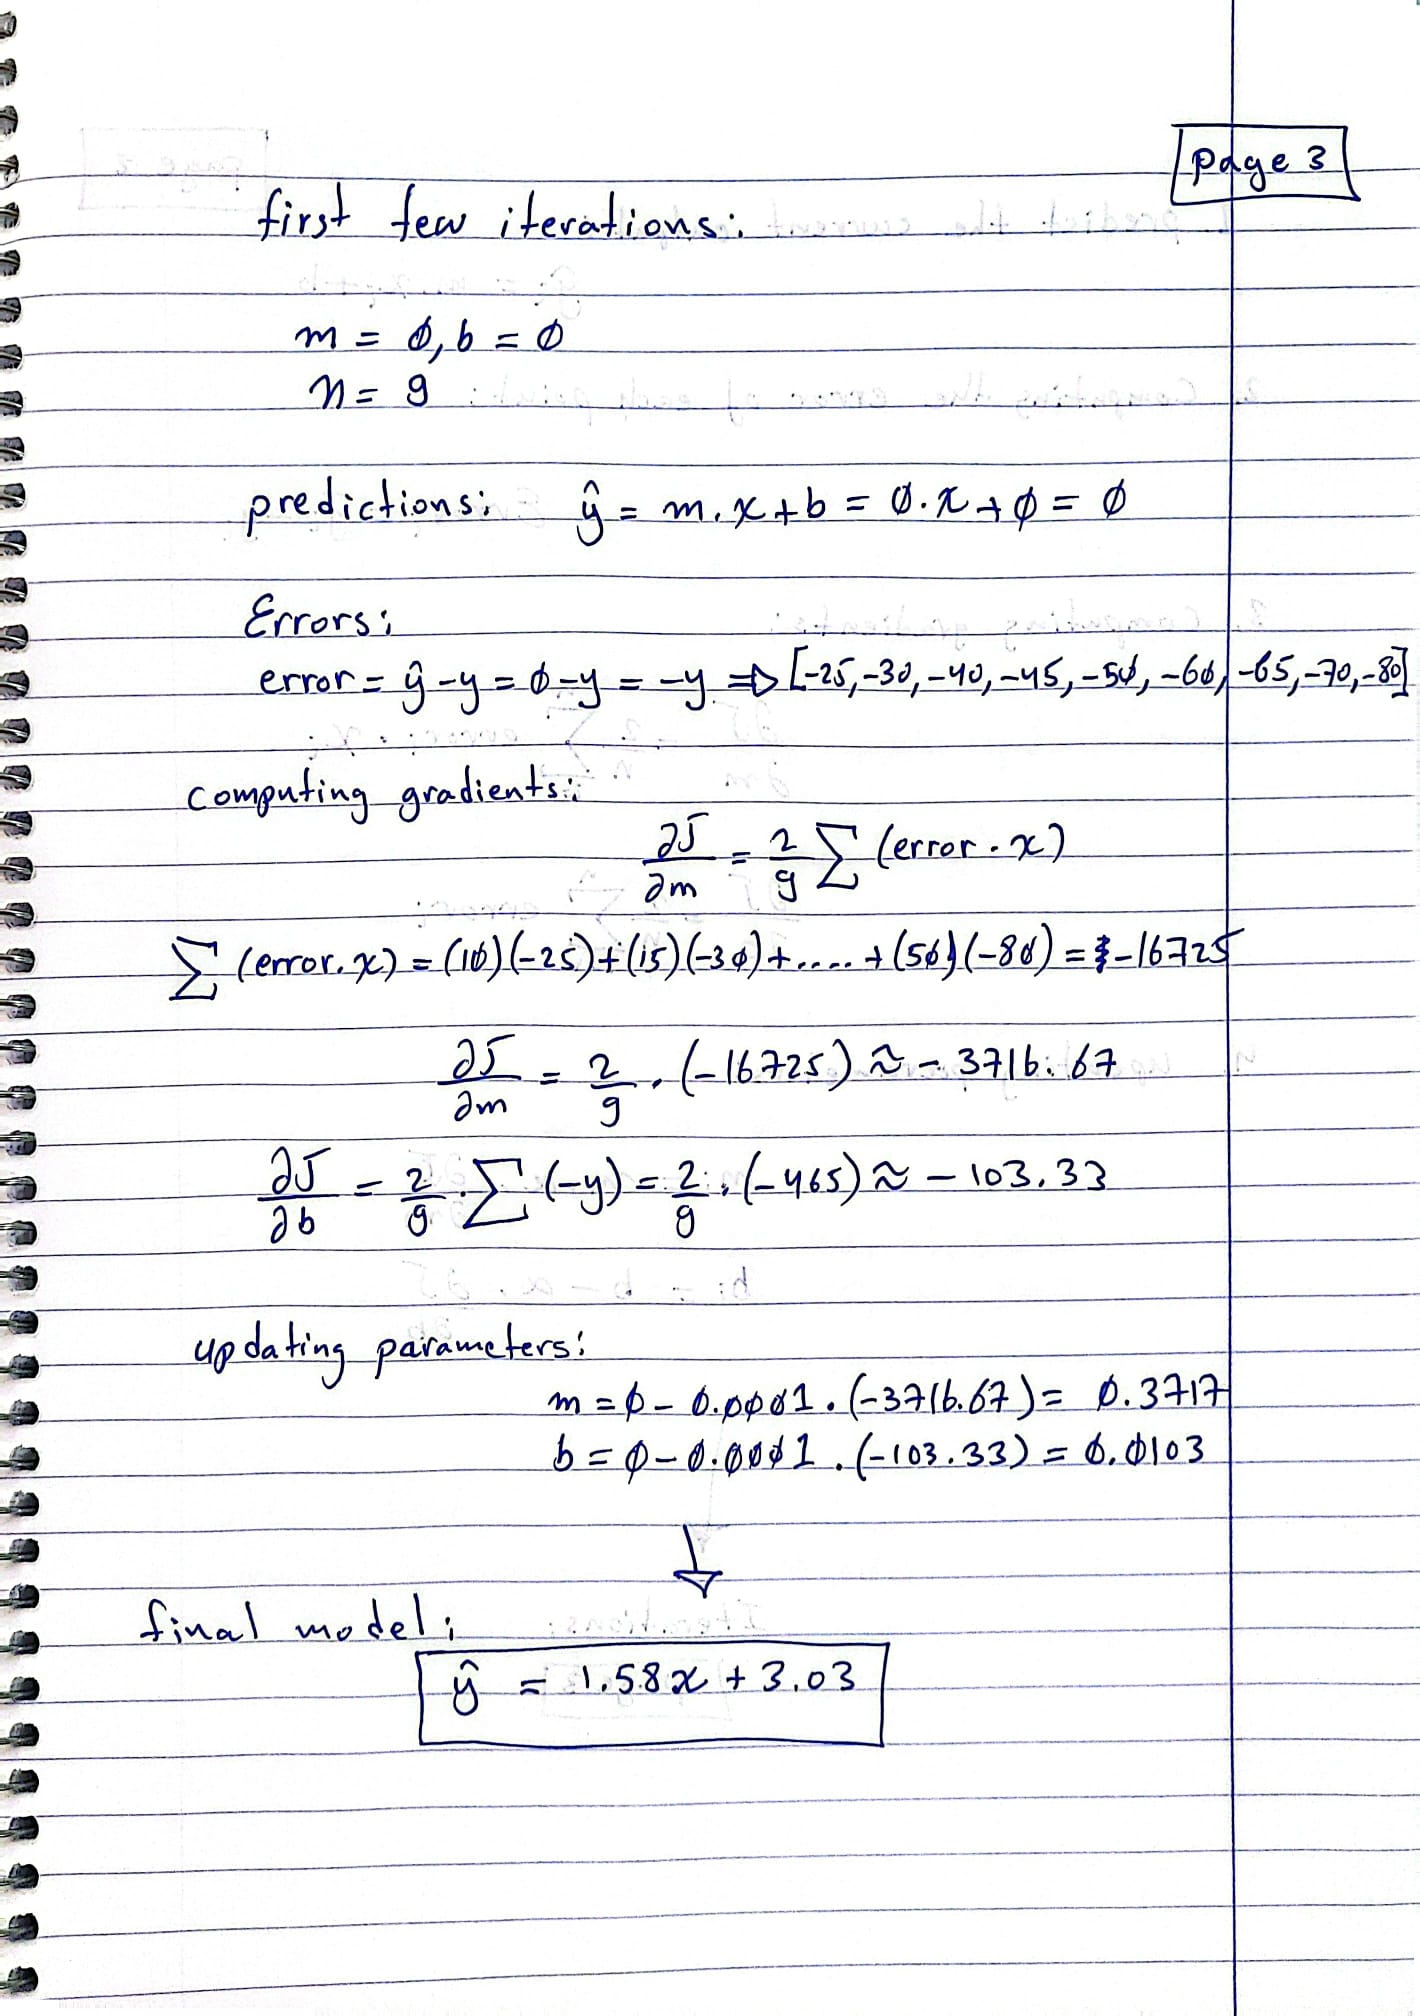 page 3
first few iterations:
m = 0, b = 0
n = 9
predictions: ŷ = m.x+b = 0.x+0 = 0
Errors:
error = ŷ-y = 0-y = -y ⇒ [-25,-30,-40,-45,-50,-60,-65,-70,-80]
computing gradients:
∂J/∂m = 2/9 Σ (error.x)
Σ (error.x) = (10)(-25)+(15)(-30)+.....+(50)(-80) = -16725
∂J/∂m = 2/9 . (-16725) ≈ -3716.67
∂J/∂b = 2/9 . Σ (-y) = 2/9 . (-465) ≈ -103.33
updating parameters:
m = 0 - 0.0001 . (-3716.67) = 0.3717
b = 0 - 0.0001 . (-103.33) = 0.0103
↓
final model:
ŷ = 1.58x + 3.03